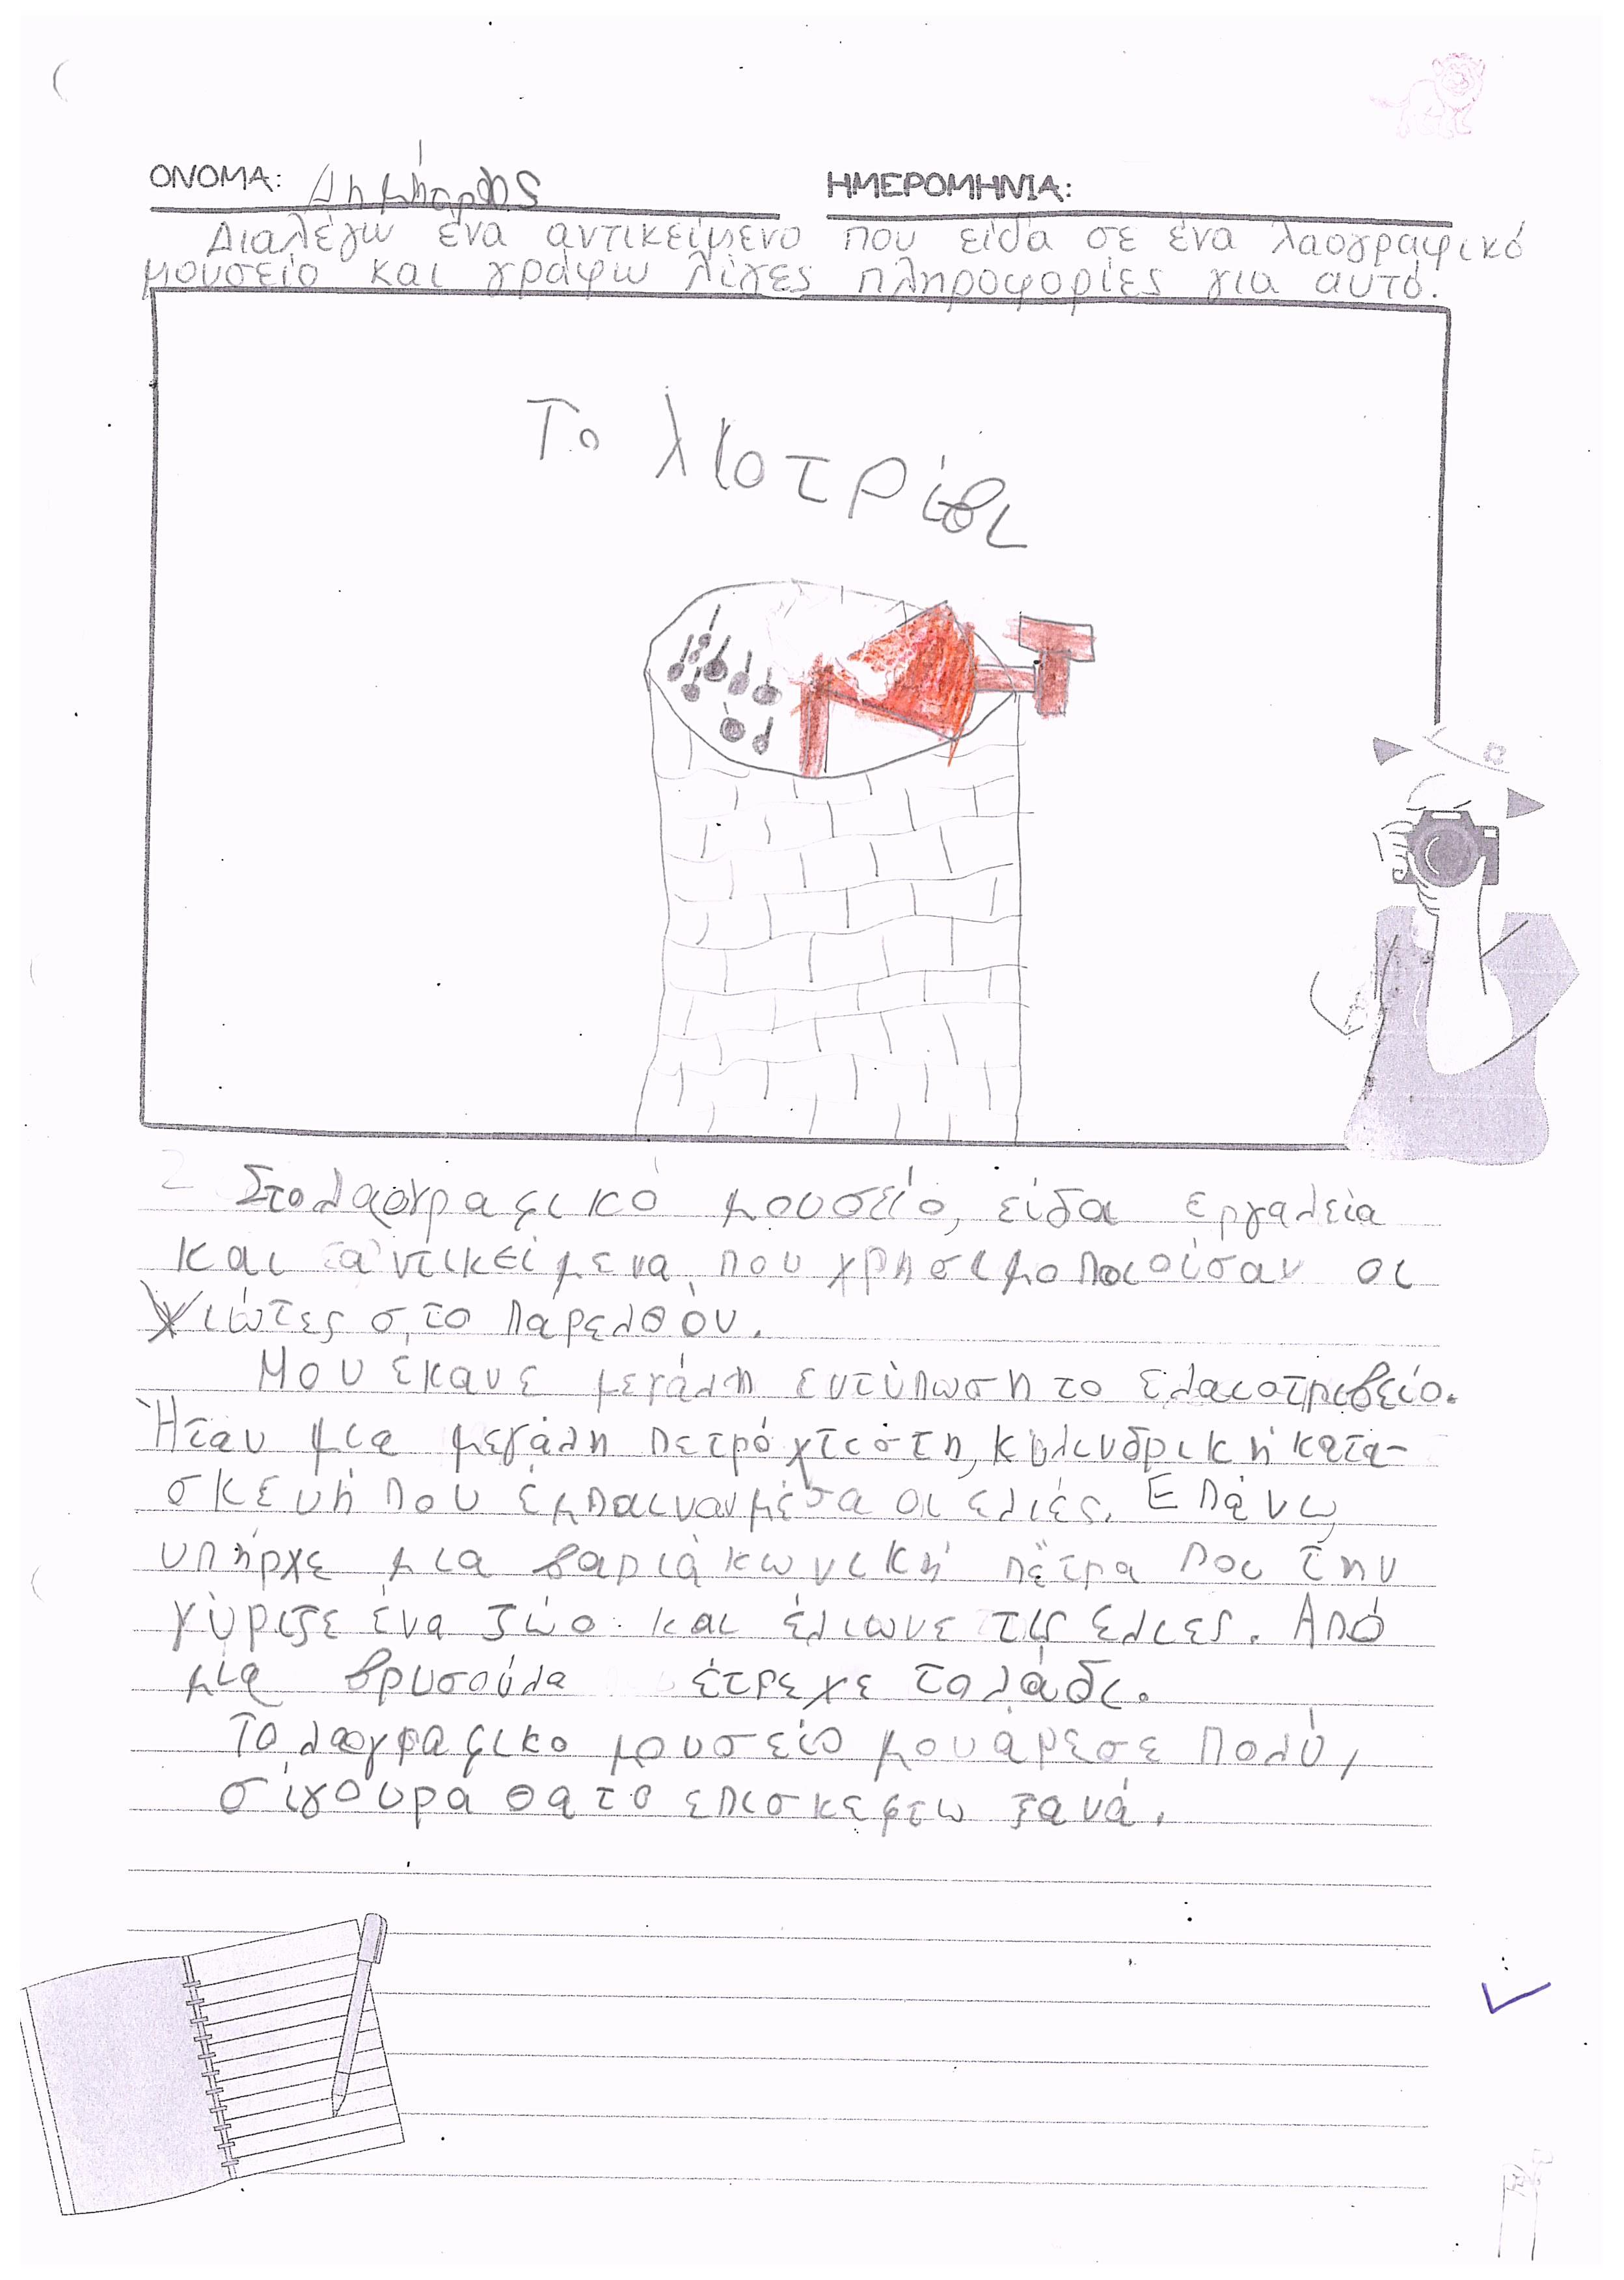 ΟΝΟΜΑ: ΗΜΕΡΟΜΗΝΙΑ:
Διαλέγω ένα αντικείμενο που είδα σε ένα λαογραφικό
μουσείο και γράφω λίγες πληροφορίες για αυτό.
Το λιοτρίβι
Στο λαογραφικό μουσείο, είδα εργαλεία
και αντικείμενα που χρησιμοποιούσαν οι
Χιώτες στο παρελθόν.
Μου έκανε μεγάλη εντύπωση το ελαιοτριβείο.
Ήταν μια μεγάλη πετρόχτιστη, κυλινδρική κατα-
σκευή που έμπαιναν μέσα οι ελιές. Επάνω
υπήρχε μια βαριά κωνική πέτρα που την
γύριζε ένα ζώο και έλιωνε τις ελιες. Από
μια βρυσούλα έτρεχε το λάδι.
Το λαογραφικο μουσείο μου άρεσε πολύ,
σίγουρα θα το επισκεφτω ξανά.